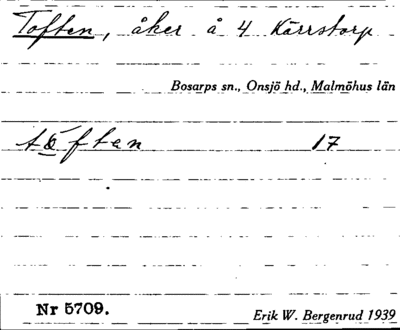 Toften, åker å 4 Kärrstorp
Bosarps sn., Onsjö hd., Malmöhus län
töften 17
Nr 5709.
Erik W. Bergenrud 1939